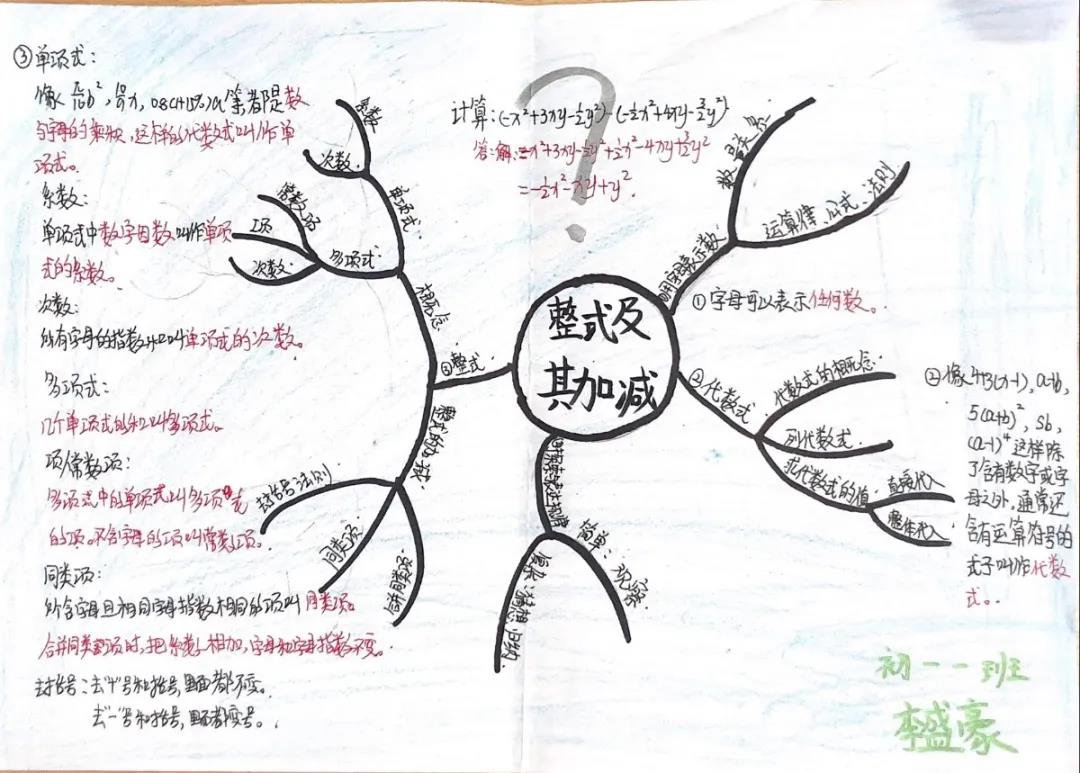 ③单项式:
数
与字母的乘积,这样的代数式叫作单
项式。
系数:
单项式中数字因数叫作单项
式的系数。
次数:
所有字母的指数和叫单项式的次数。
多项式:
几个单项式的和叫多项式。
项常数项:
多项式中的单项式叫多项式
的项。不含字母的项叫常数项。
同类项:
所含字母且相同字母指数相同的项叫同类项。
合并同类项时,把系数相加,字母和字母指数不变。
去括号:去"+"号和括号,里面都不变。
去"-"号和括号,里面都变号。
系数
次数
单项式
常数项
项
次数
多项式
概念
③整式
整式的加减
去括号法则
同类项
合并同类项
计算:(-x²+3xy-½y²)-(-½x²+4xy-3/2y²)
答:解:=-x²+3xy-½y²+½x²-4xy+3/2y²
=-½x²-xy+y²
整式及
其加减
用字母表示数
数量关系
运算律、公式、法则
①字母可以表示任何数。
②代数式
代数式的概念
列代数式
求代数式的值
直接代入
整体代入
②像4+3(x-1),a+b,
5(a+b)²,
(a-1)⁴这样除
了含有数字或字
母之外,通常还
含有运算符号的
式子叫作代数
式。
探索规律
简单:观察
猜想 归纳
初一一班
李盛豪